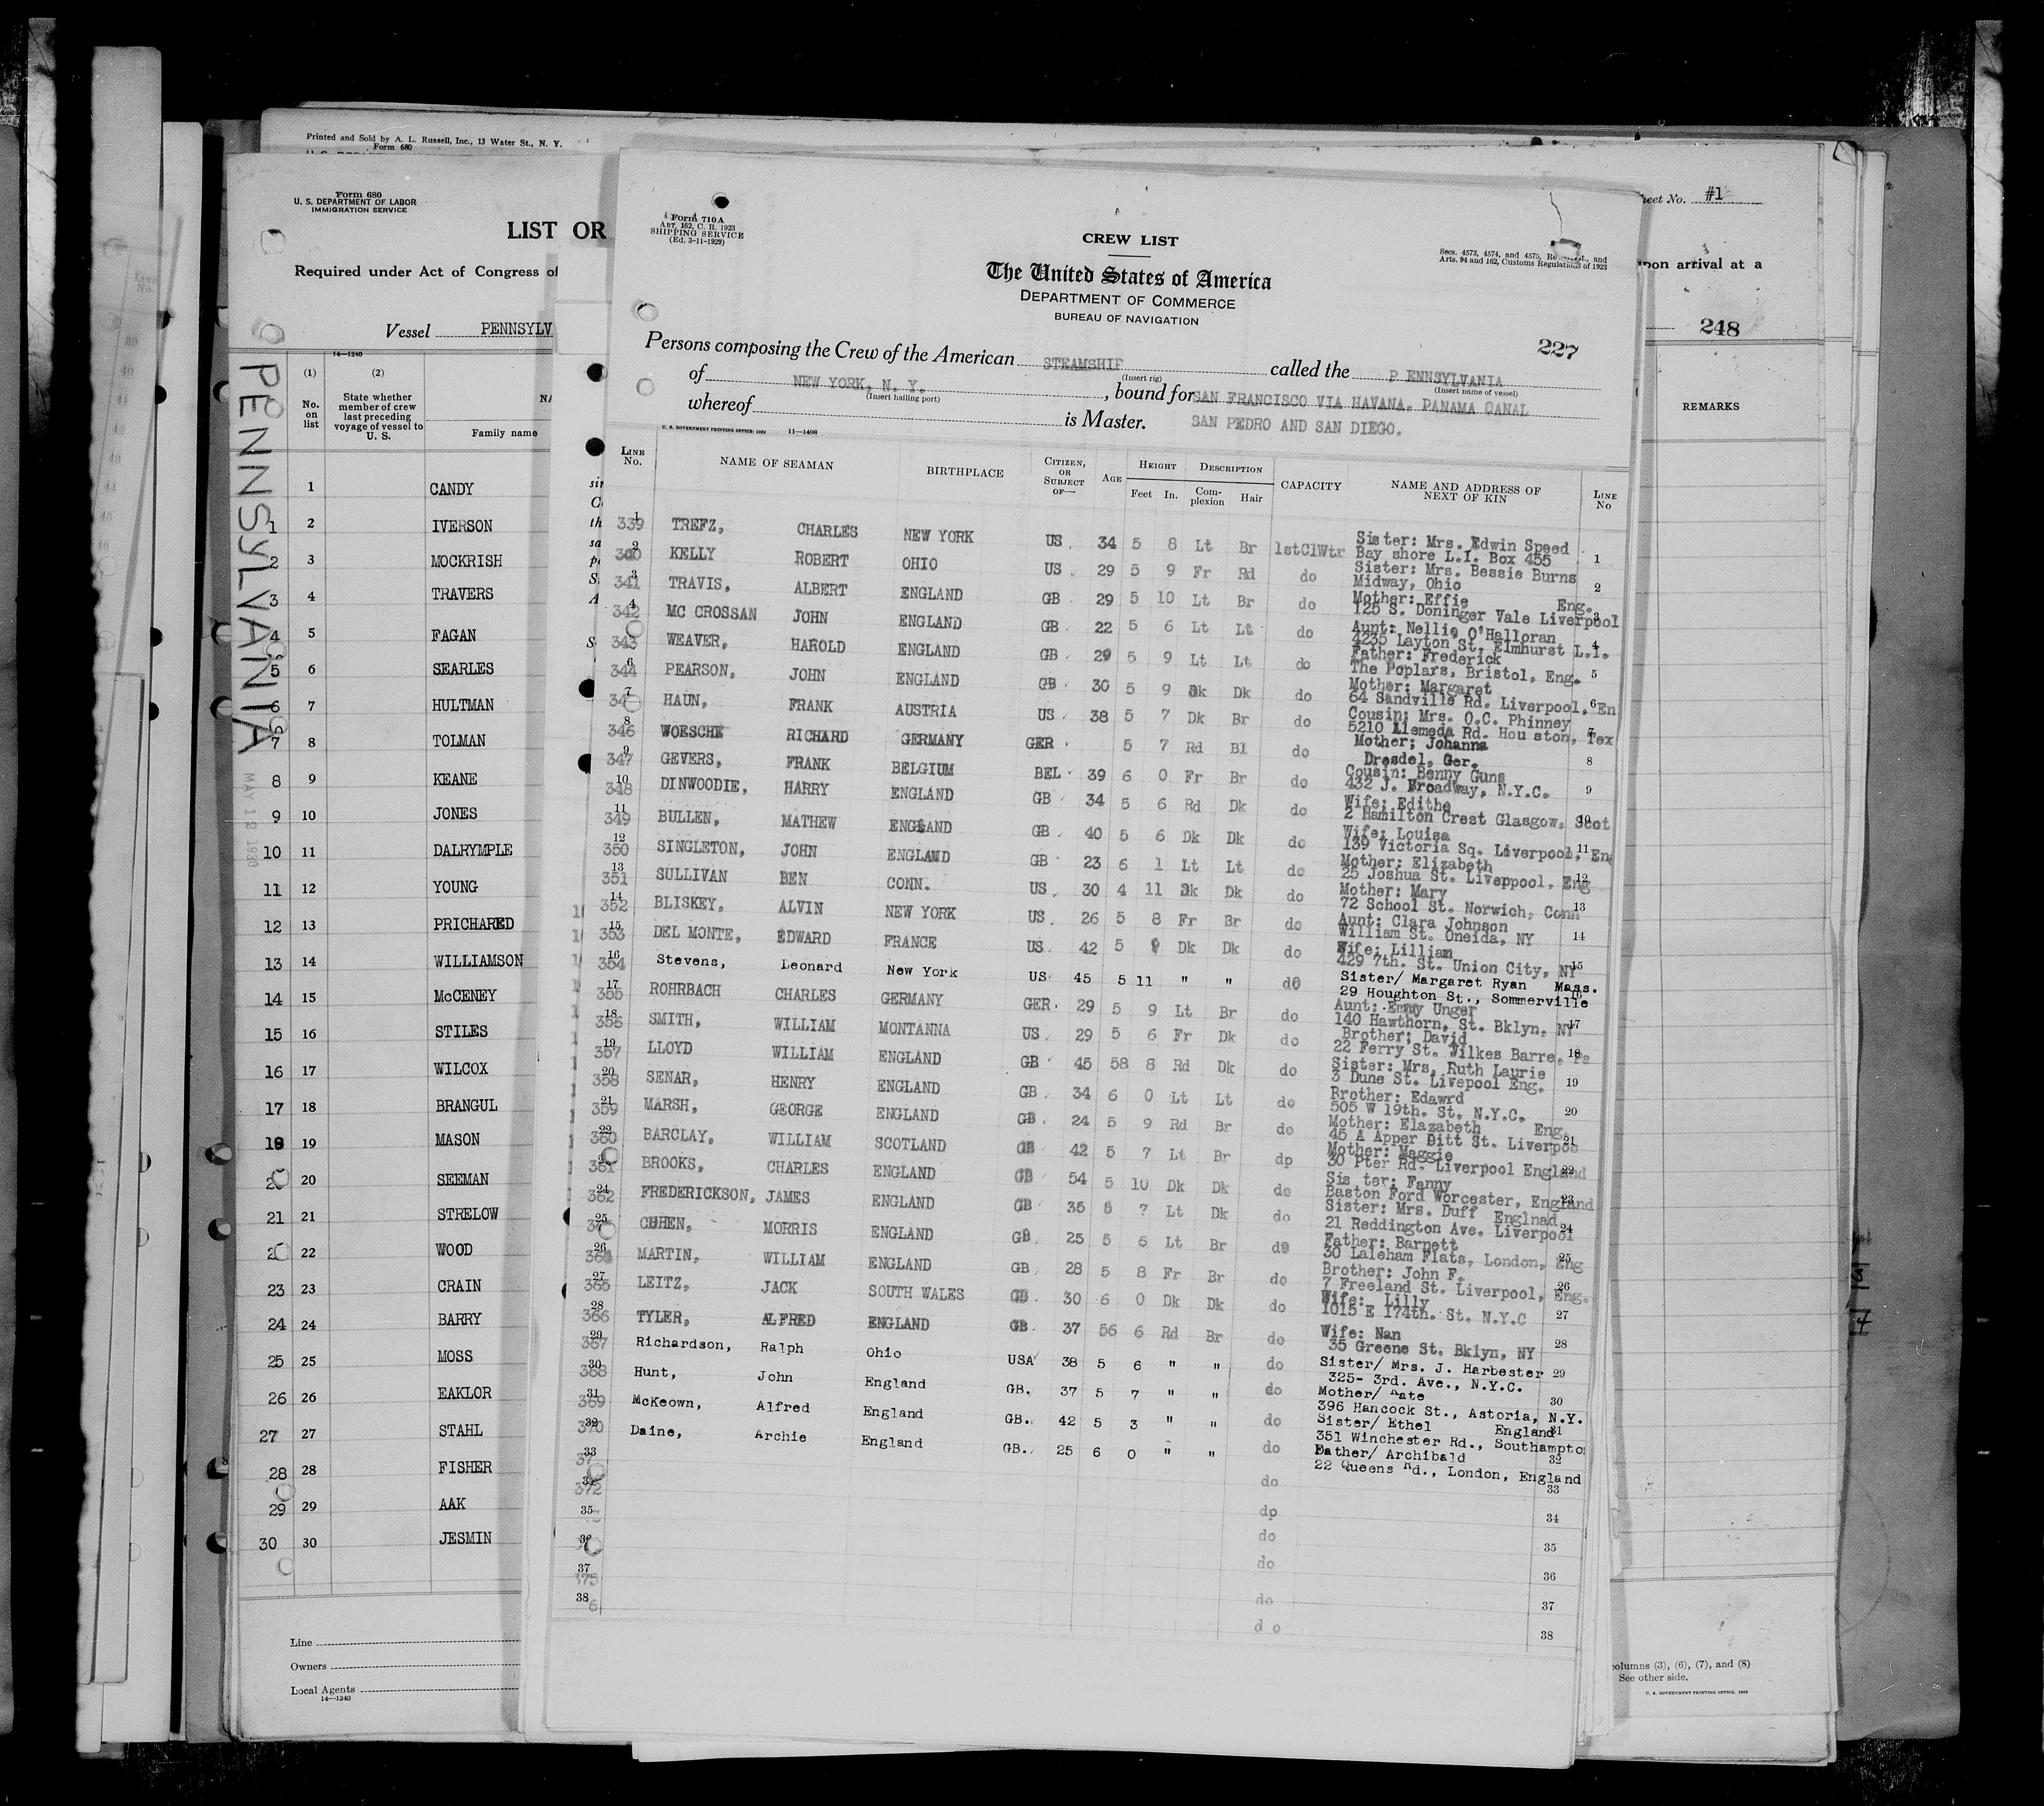 Printed and Sold by A. L. Russell, Inc., 13 Water St., N. Y.
Form 680
Form 680
U. S. DEPARTMENT OF LABOR
IMMIGRATION SERVICE
LIST OR
Required under Act of Congress of
Vessel PENNSYLV
14—1240
(1) No. on list
(2) State whether member of crew last preceding voyage of vessel to U. S.
NA
Family name
PENNSYLVANIA
MAY 12 1930
1 CANDY
1 2 IVERSON
2 3 MOCKRISH
3 4 TRAVERS
4 5 FAGAN
5 6 SEARLES
6 7 HULTMAN
7 8 TOLMAN
8 9 KEANE
9 10 JONES
10 11 DALRYMPLE
11 12 YOUNG
12 13 PRICHARED
13 14 WILLIAMSON
14 15 McCENEY
15 16 STILES
16 17 WILCOX
17 18 BRANGUL
18 19 MASON
20 SEEMAN
21 21 STRELOW
22 WOOD
23 23 CRAIN
24 24 BARRY
25 25 MOSS
26 26 EAKLOR
27 27 STAHL
28 28 FISHER
29 29 AAK
30 30 JESMIN
Line
Owners
Local Agents
14—1240
Form 710A
ART. 162, C. R. 1923
SHIPPING SERVICE
(Ed. 3-11-1929)
CREW LIST
The United States of America
DEPARTMENT OF COMMERCE
BUREAU OF NAVIGATION
Secs. 4573, 4574, and 4575, and
Arts. 94 and 162, Customs Regulations of 1923
227
Persons composing the Crew of the American STEAMSHIP called the PENNSYLVANIA
(Insert rig) (Insert name of vessel)
of NEW YORK, N. Y. , bound for SAN FRANCISCO VIA HAVANA, PANAMA CANAL
(Insert hailing port)
whereof is Master. SAN PEDRO AND SAN DIEGO.
U. S. GOVERNMENT PRINTING OFFICE: 1929 11—1408
LINE No. NAME OF SEAMAN BIRTHPLACE CITIZEN, OR SUBJECT OF— AGE HEIGHT Feet In. DESCRIPTION Complexion Hair CAPACITY NAME AND ADDRESS OF NEXT OF KIN LINE No
1 339 TREFZ, CHARLES NEW YORK US. 34 5 8 Lt Br 1stClWtr Sister: Mrs. Edwin Speed
Bay shore L.I. Box 455 1
2 340 KELLY ROBERT OHIO US. 29 5 9 Fr Rd do Sister: Mrs. Bessie Burns
Midway, Ohio 2
3 341 TRAVIS, ALBERT ENGLAND GB 29 5 10 Lt Br do Mother: Effie Eng.
125 S. Doninger Vale Liverpool 3
4 342 MC CROSSAN JOHN ENGLAND GB. 22 5 6 Lt Lt do Aunt: Nellie O'Halloran
4235 Layton St, Elmhurst L.I. 4
343 WEAVER, HAROLD ENGLAND GB. 29 5 9 Lt Lt do Father: Frederick
The Poplars, Bristol, Eng. 5
6 344 PEARSON, JOHN ENGLAND GB. 30 5 9 Dk Dk do Mother: Margaret
64 Sandville Rd. Liverpool, En 6
7 HAUN, FRANK AUSTRIA US. 38 5 7 Dk Br do Cousin: Mrs. O.C. Phinney
5210 Alemeda Rd. Hou ston, Tex 7
8 346 WOESCHE RICHARD GERMANY GER. 5 7 Rd Bl do Mother; Johanna
Dresdel, Ger. 8
9 347 GEVERS, FRANK BELGIUM BEL. 39 6 0 Fr Br do Cousin: Benny Guns
432 J. Broadway, N.Y.C. 9
10 348 DINWOODIE, HARRY ENGLAND GB. 34 5 6 Rd Dk do Wife: Edithe
2 Hamilton Crest Glasgow, Scot 10
11 349 BULLEN, MATHEW ENGLAND GB. 40 5 6 Dk Dk do Wife: Louisa
139 Victoria Sq. Liverpool, En 11
12 350 SINGLETON, JOHN ENGLAND GB. 23 6 1 Lt Lt do Mother: Elizabeth
25 Joshua St. Liveppool, Eng 12
13 351 SULLIVAN BEN CONN. US. 30 4 11 Dk Dk do Mother: Mary
72 School St. Norwich, Conn 13
14 352 BLISKEY, ALVIN NEW YORK US. 26 5 8 Fr Br do Aunt: Clara Johnson
William St. Oneida, NY 14
15 353 DEL MONTE, EDWARD FRANCE US. 42 5 9 Dk Dk do Wife: Lilliam
429 7th. St. Union City, NY 15
16 354 Stevens, Leonard New York US 45 5 11 " " do Sister/ Margaret Ryan Mass.
29 Houghton St., Sommerville 16
17 355 ROHRBACH CHARLES GERMANY GER. 29 5 9 Lt Br do Aunt: Emmy Unger
140 Hawthorn, St. Bklyn, NY 17
18 356 SMITH, WILLIAM MONTANNA US. 29 5 6 Fr Dk do Brother; David
22 Ferry St. Wilkes Barre, Pa 18
19 357 LLOYD WILLIAM ENGLAND GB 45 58 8 Rd Dk do Sister: Mrs, Ruth Laurie
3 Dune St. Livepool Eng. 19
20 358 SENAR, HENRY ENGLAND GB. 34 6 0 Lt Lt do Brother: Edawrd
505 W 19th. St. N.Y.C. 20
21 359 MARSH, GEORGE ENGLAND GB. 24 5 9 Rd Br do Mother: Elazabeth Eng.
45 A Apper Ditt St. Liverpoo 21
22 360 BARCLAY, WILLIAM SCOTLAND GB 42 5 7 Lt Br dp Mother: Maggie
30 Pter Rd. Liverpool England 22
361 BROOKS, CHARLES ENGLAND GB 54 5 10 Dk Dk do Sis ter: Fanny
Baston Ford Worcester, England 23
24 362 FREDERICKSON, JAMES ENGLAND GB 35 5 7 Lt Dk do Sister: Mrs. Duff Englnad
21 Reddington Ave. Liverpool 24
25 COHEN, MORRIS ENGLAND GB. 25 5 6 Lt Br do Father: Barnett
30 Laleham Flats, London, Eng 25
26 364 MARTIN, WILLIAM ENGLAND GB. 28 5 8 Fr Br do Brother: John F.
7 Freeland St. Liverpool, Eng. 26
27 365 LEITZ, JACK SOUTH WALES GB. 30 6 0 Dk Dk do Wife: Lilly
1015 E 174th. St. N.Y.C 27
28 366 TYLER, ALFRED ENGLAND GB. 37 56 6 Rd Br do Wife: Nan
35 Greene St. Bklyn, NY 28
29 367 Richardson, Ralph Ohio USA 38 5 6 " " do Sister/ Mrs. J. Harbester 29
325- 3rd. Ave., N.Y.C.
30 368 Hunt, John England GB. 37 5 7 " " do Mother/ Kate 30
396 Hancock St., Astoria, N.Y.
31 369 McKeown, Alfred England GB. 42 5 3 " " do Sister/ Ethel England 31
351 Winchester Rd., Southampto
32 370 Daine, Archie England GB. 25 6 0 " " do Father/ Archibald 32
22 Queens Rd., London, England
33 do 33
372 dp 34
35 do 35
36 do 36
37 375 do 37
38 6 d o 38
Sheet No. #1
upon arrival at a
248
REMARKS
columns (3), (6), (7), and (8)
See other side.
U. S. GOVERNMENT PRINTING OFFICE: 1929